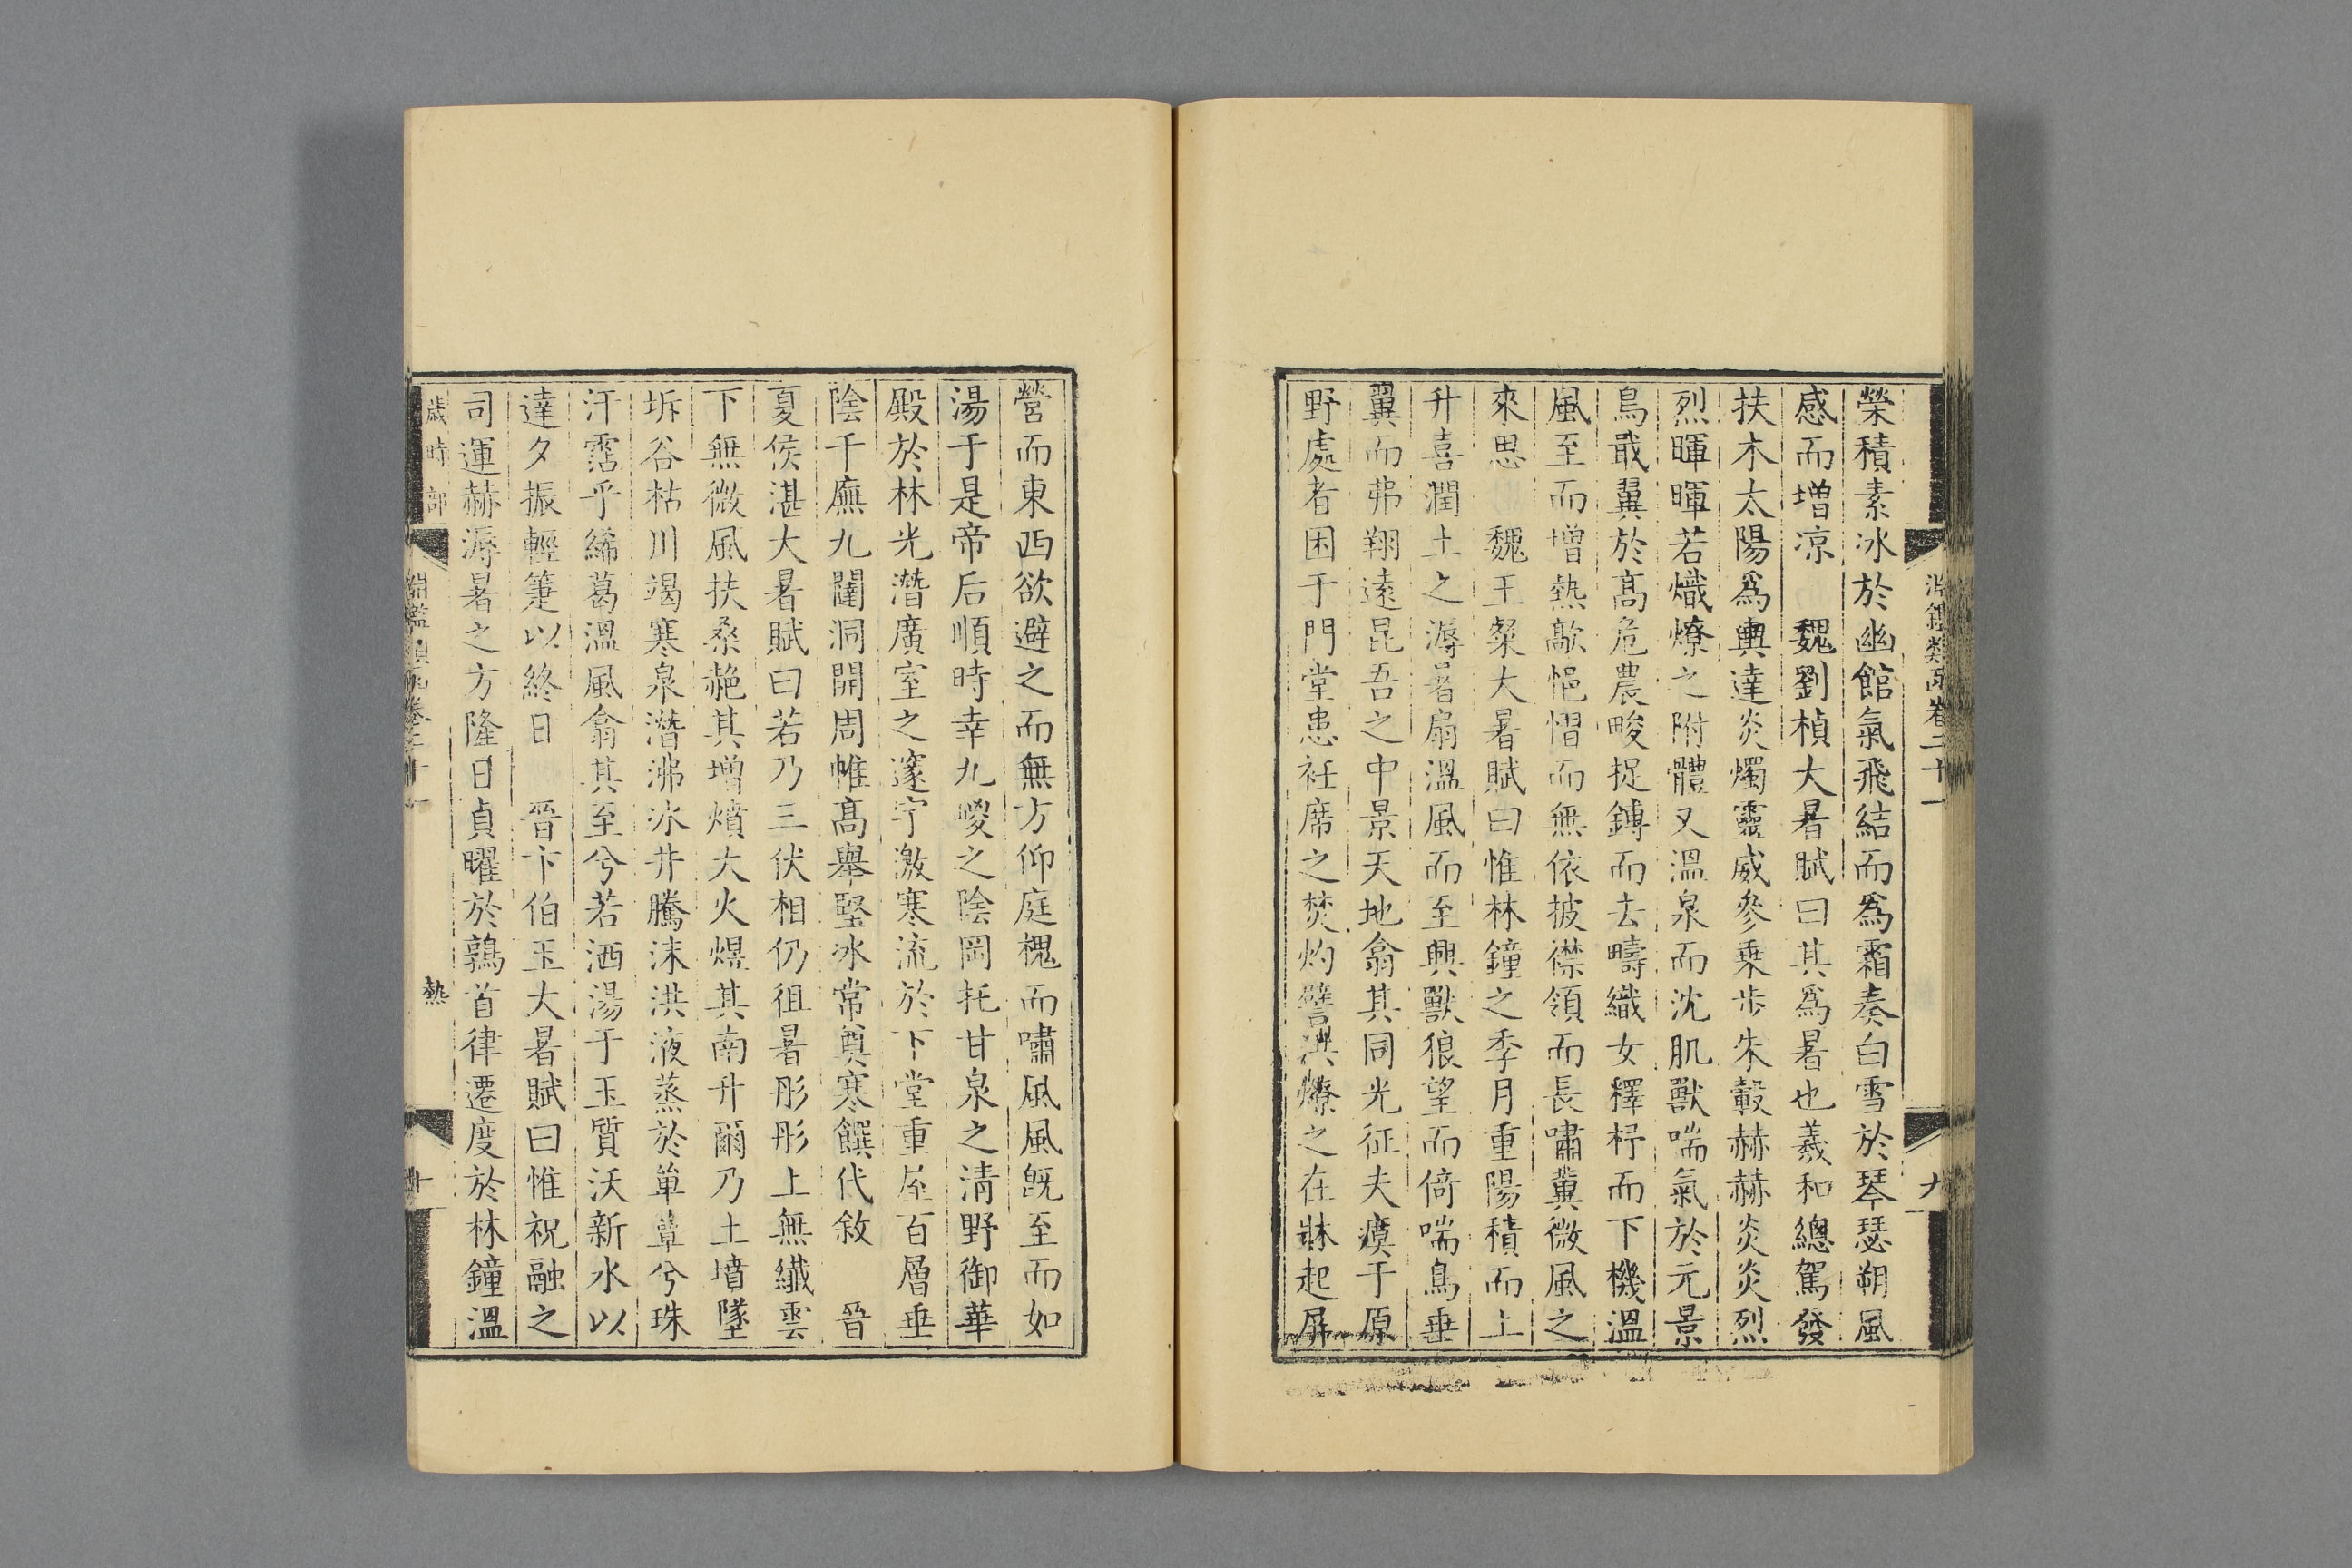 淵鑑類函卷二十一　九
榮積素冰於幽館氣飛結而爲霜奏白雪於琴瑟朔風
感而增凉　魏劉楨大暑賦曰其爲暑也羲和總駕發
扶木太陽爲輿達炎燭靈威參乗步朱轂赫赫炎炎烈
烈暉暉若熾燎之附體又溫泉而沈肌獸喘氣於元景
鳥戢翼於髙危農畯捉鎛而去疇織女釋杼而下機溫
風至而增熱歊悒慴而無依披襟領而長嘯冀微風之
來思　魏王粲大暑賦曰惟林鐘之季月重陽積而上
升喜潤土之溽暑扇溫風而至興獸狼望而倚喘鳥垂
翼而弗翔逺昆吾之中景天地翕其同光征夫瘼于原
野處者困于門堂患衽席之焚灼譬洪燎之在牀起屏
營而東西欲避之而無方仰庭槐而嘯風風旣至而如
湯于是帝后順時幸九嵕之陰岡托甘泉之清野御華
殿於林光潛廣室之邃宇激寒流於下堂重屋百層垂
陰千廡九闥洞開周帷髙舉堅冰常奠寒饌代敘　晉
夏侯湛大暑賦曰若乃三伏相仍徂暑彤彤上無纎雲
下無微風扶桑赩其增燌大火煜其南升爾乃土墳墜
坼谷枯川竭寒泉潛沸冰井騰沫洪液蒸於單簟兮珠
汗霑乎絺葛溫風翕其至兮若洒湯于玉質沃新水以
達夕振輕箑以終日　晉卞伯玉大暑賦曰惟祝融之
司運赫溽暑之方隆日貞曜於鶉首律遷度於林鐘溫
歲時部　淵鑑類函卷二十一　熱　十